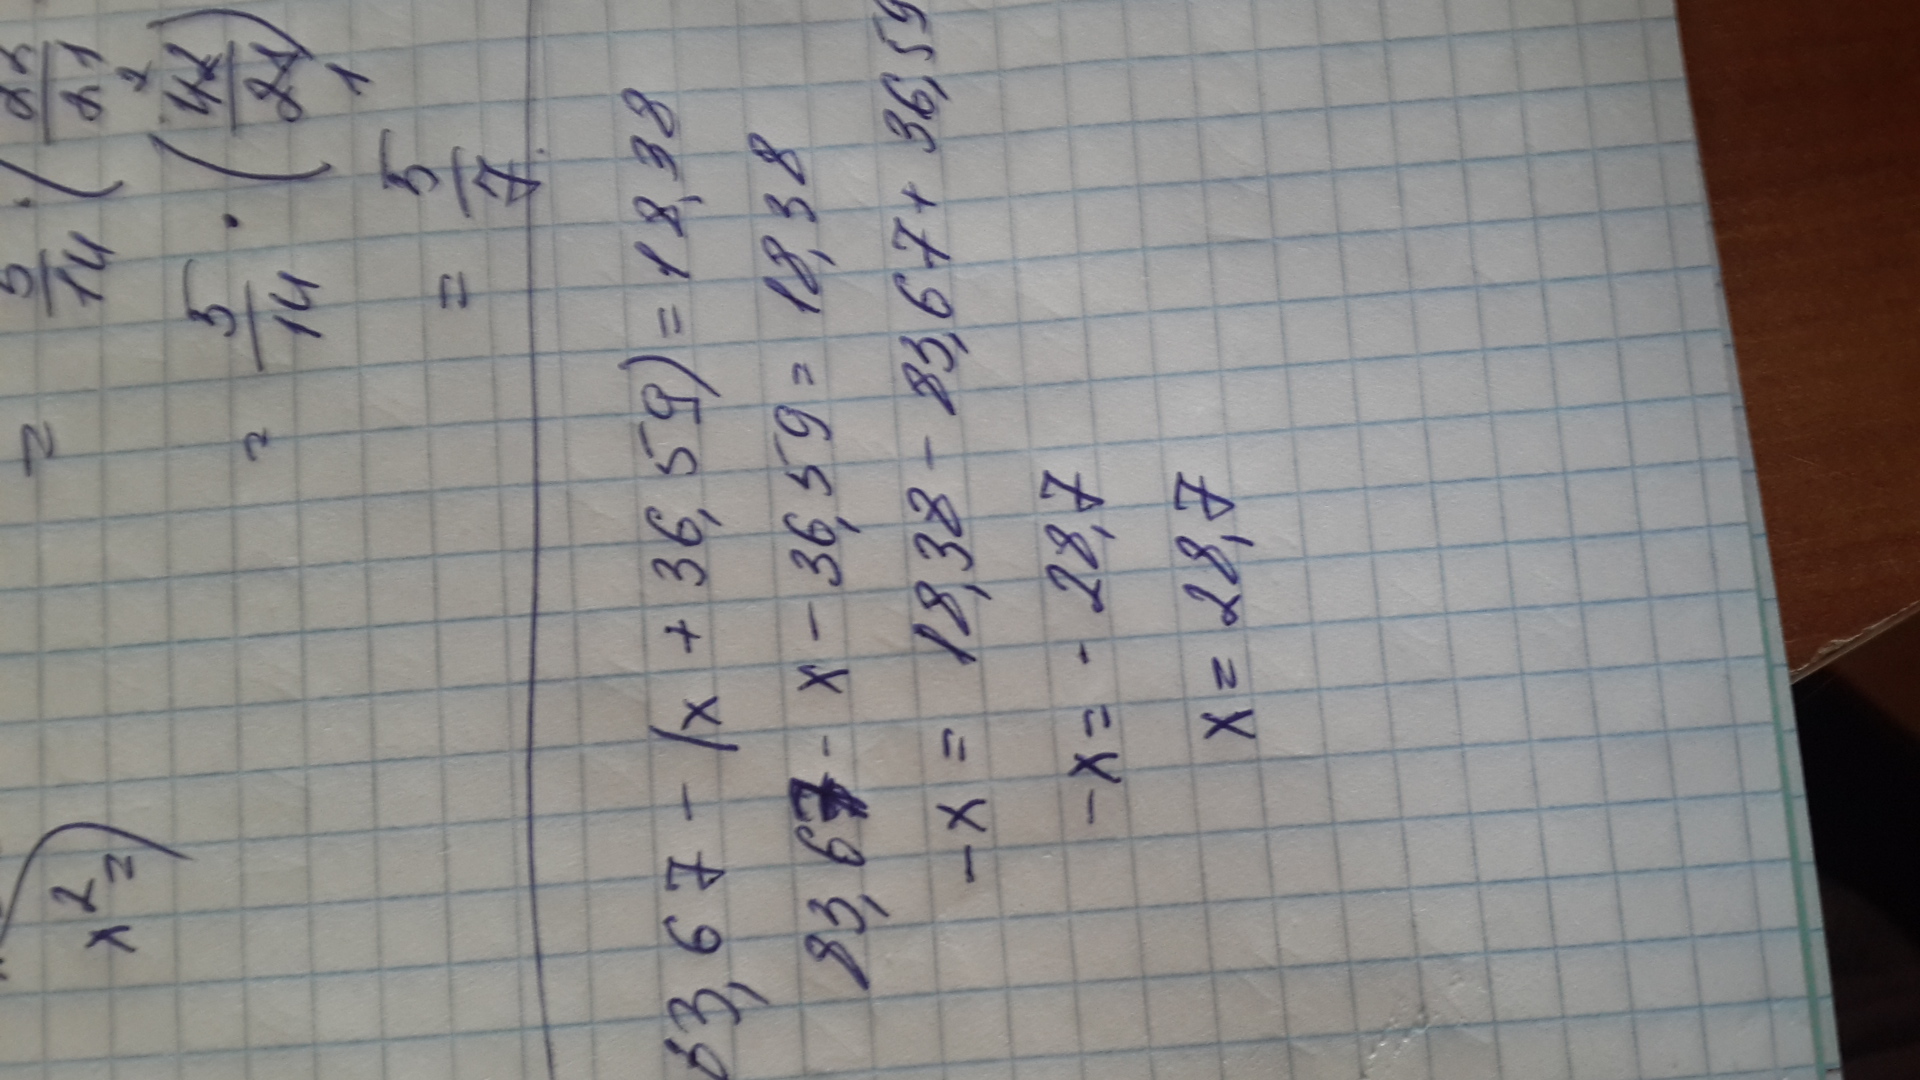 = 5/14 · (
= 5/14 · (42/21)
2 1
= 5/7
x2 =
83,67 - (x + 36,59) = 18,38
83,67 - x - 36,59 = 18,38
-x = 18,38 - 83,67 + 36,59
-x = - 28,7
x = 28,7